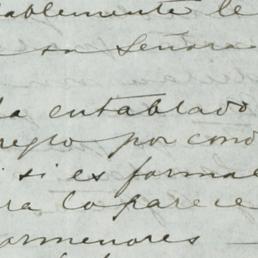 ablemente le
su Señora
ha entablado
reglo por cond
si es formal
ra lo parece
ormenores